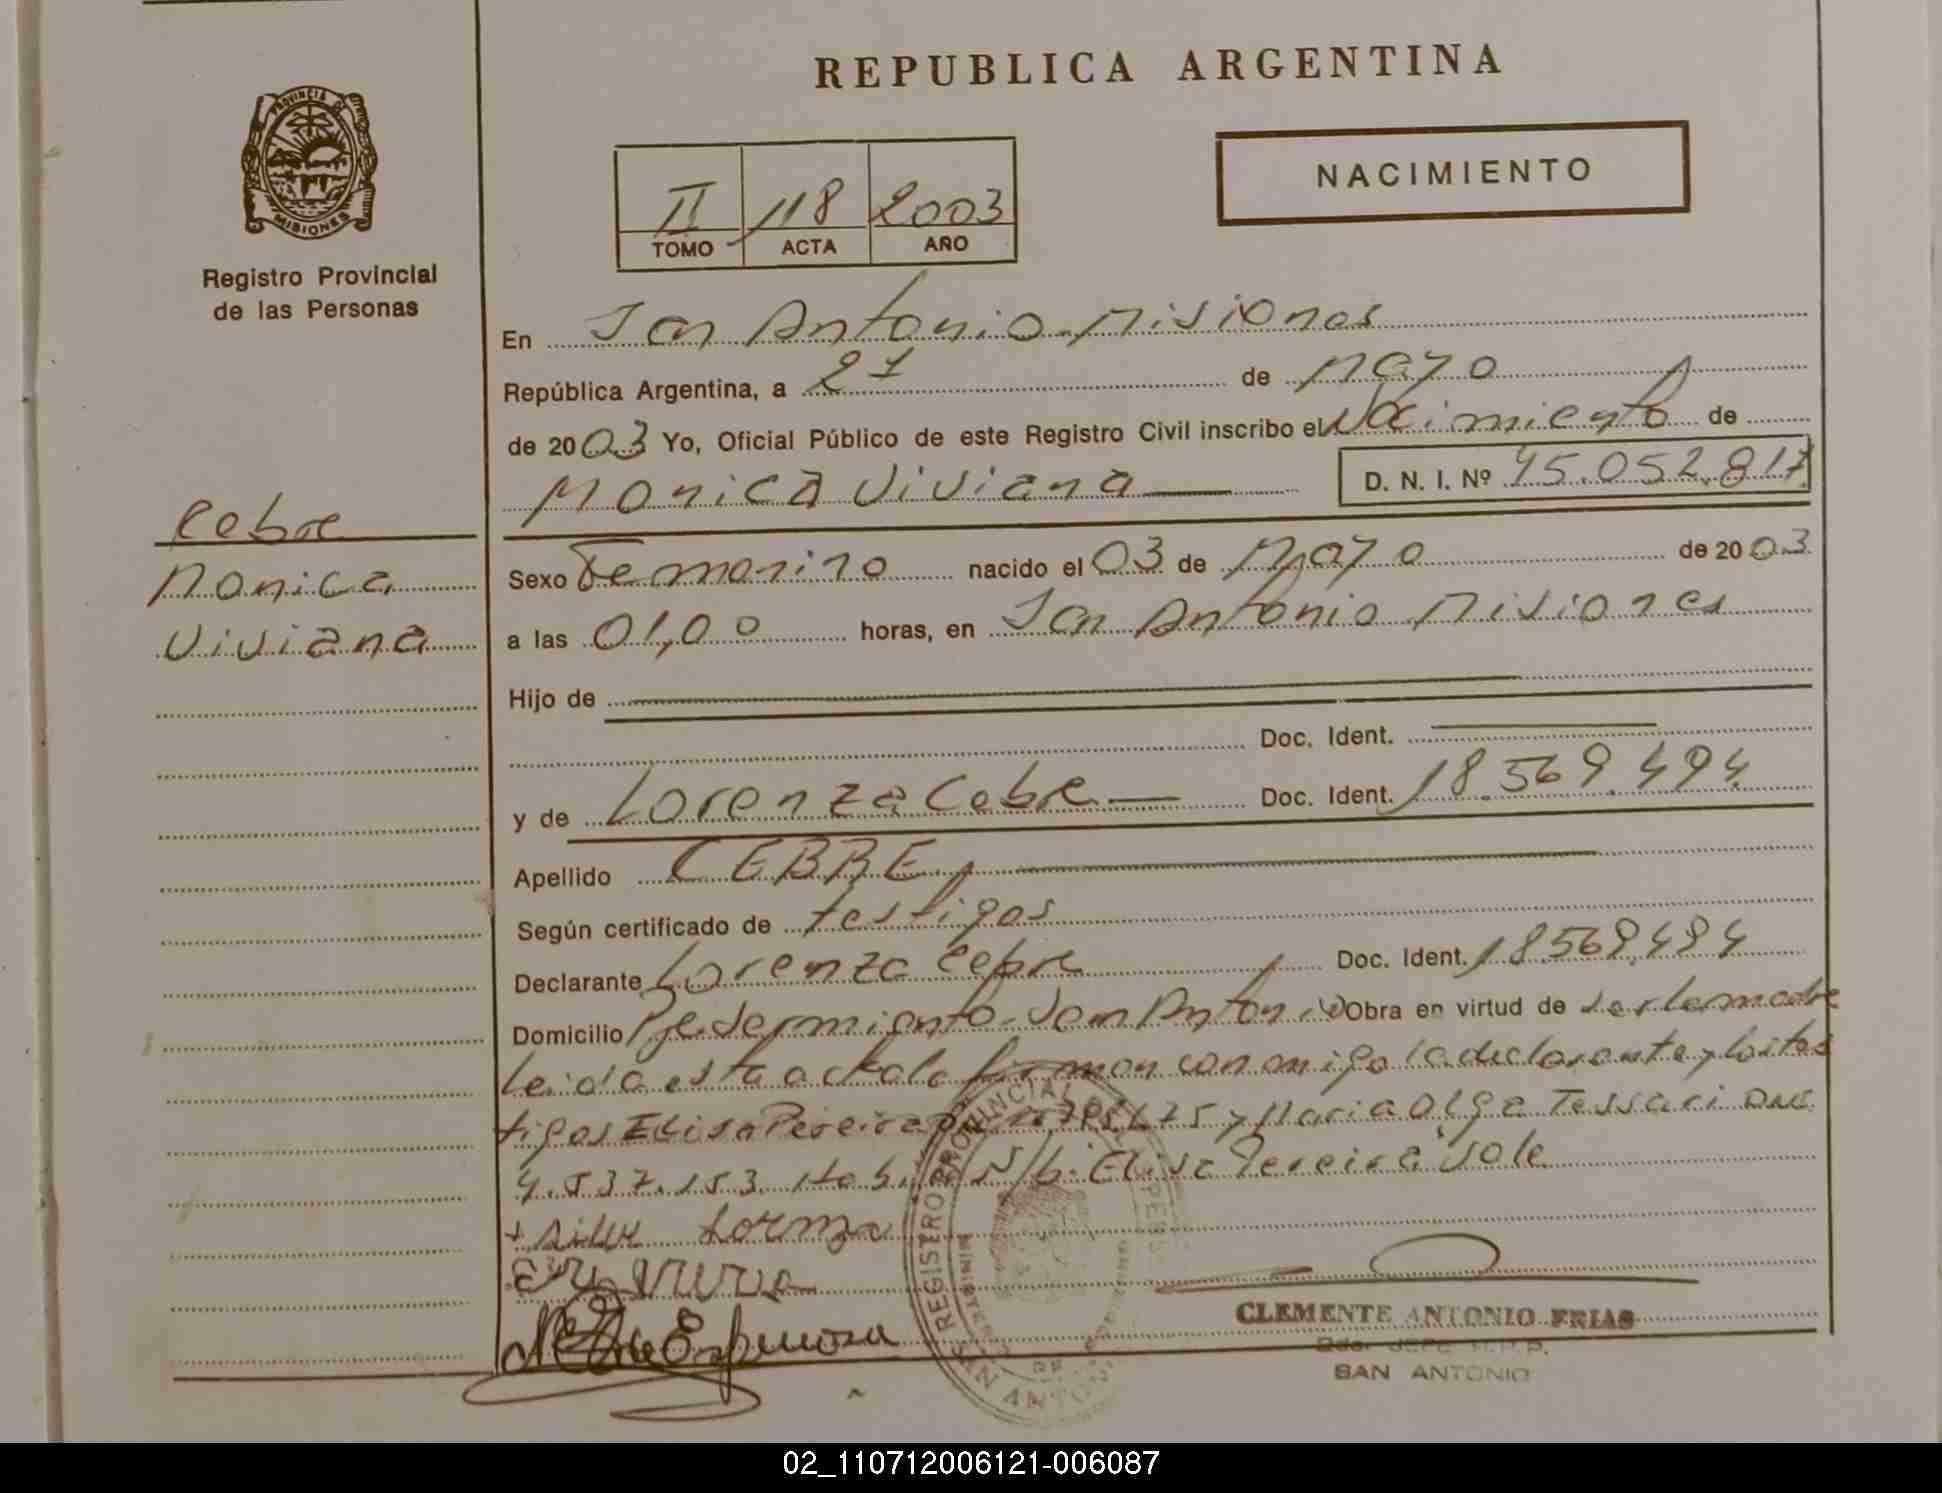 REPUBLICA ARGENTINA
PROVINCIA DE
MISIONES
Registro Provincial
de las Personas
II 118 2003
TOMO ACTA AÑO
NACIMIENTO
En San Antonio Misiones
República Argentina, a 21 de Mayo
de 2003 Yo, Oficial Público de este Registro Civil inscribo el Nacimiento de
Monica Viviana D. N. I. Nº 45.052.817
Cebre
Monica
Viviana
Sexo Femenino nacido el 03 de Mayo de 2003
a las 01,00 horas, en San Antonio Misiones
Hijo de
Doc. Ident.
y de Lorenza Cebre Doc. Ident. 18.569.494
Apellido CEBRE
Según certificado de testigos
Declarante Lorenza Cebre Doc. Ident. 18569.494
Domicilio San Antonio Obra en virtud de ser la madre
Leida esta acta la firman con migo la declarante y los tes
tigos Elisa Pereira y Maria Olga Tessari DNI
4.537.153 S/b: Elisa Pereira Vale
Espinosa
REGISTRO PROVINCIAL
SAN ANTONIO
CLEMENTE ANTONIO FRIAS
SAN ANTONIO
02_110712006121-006087